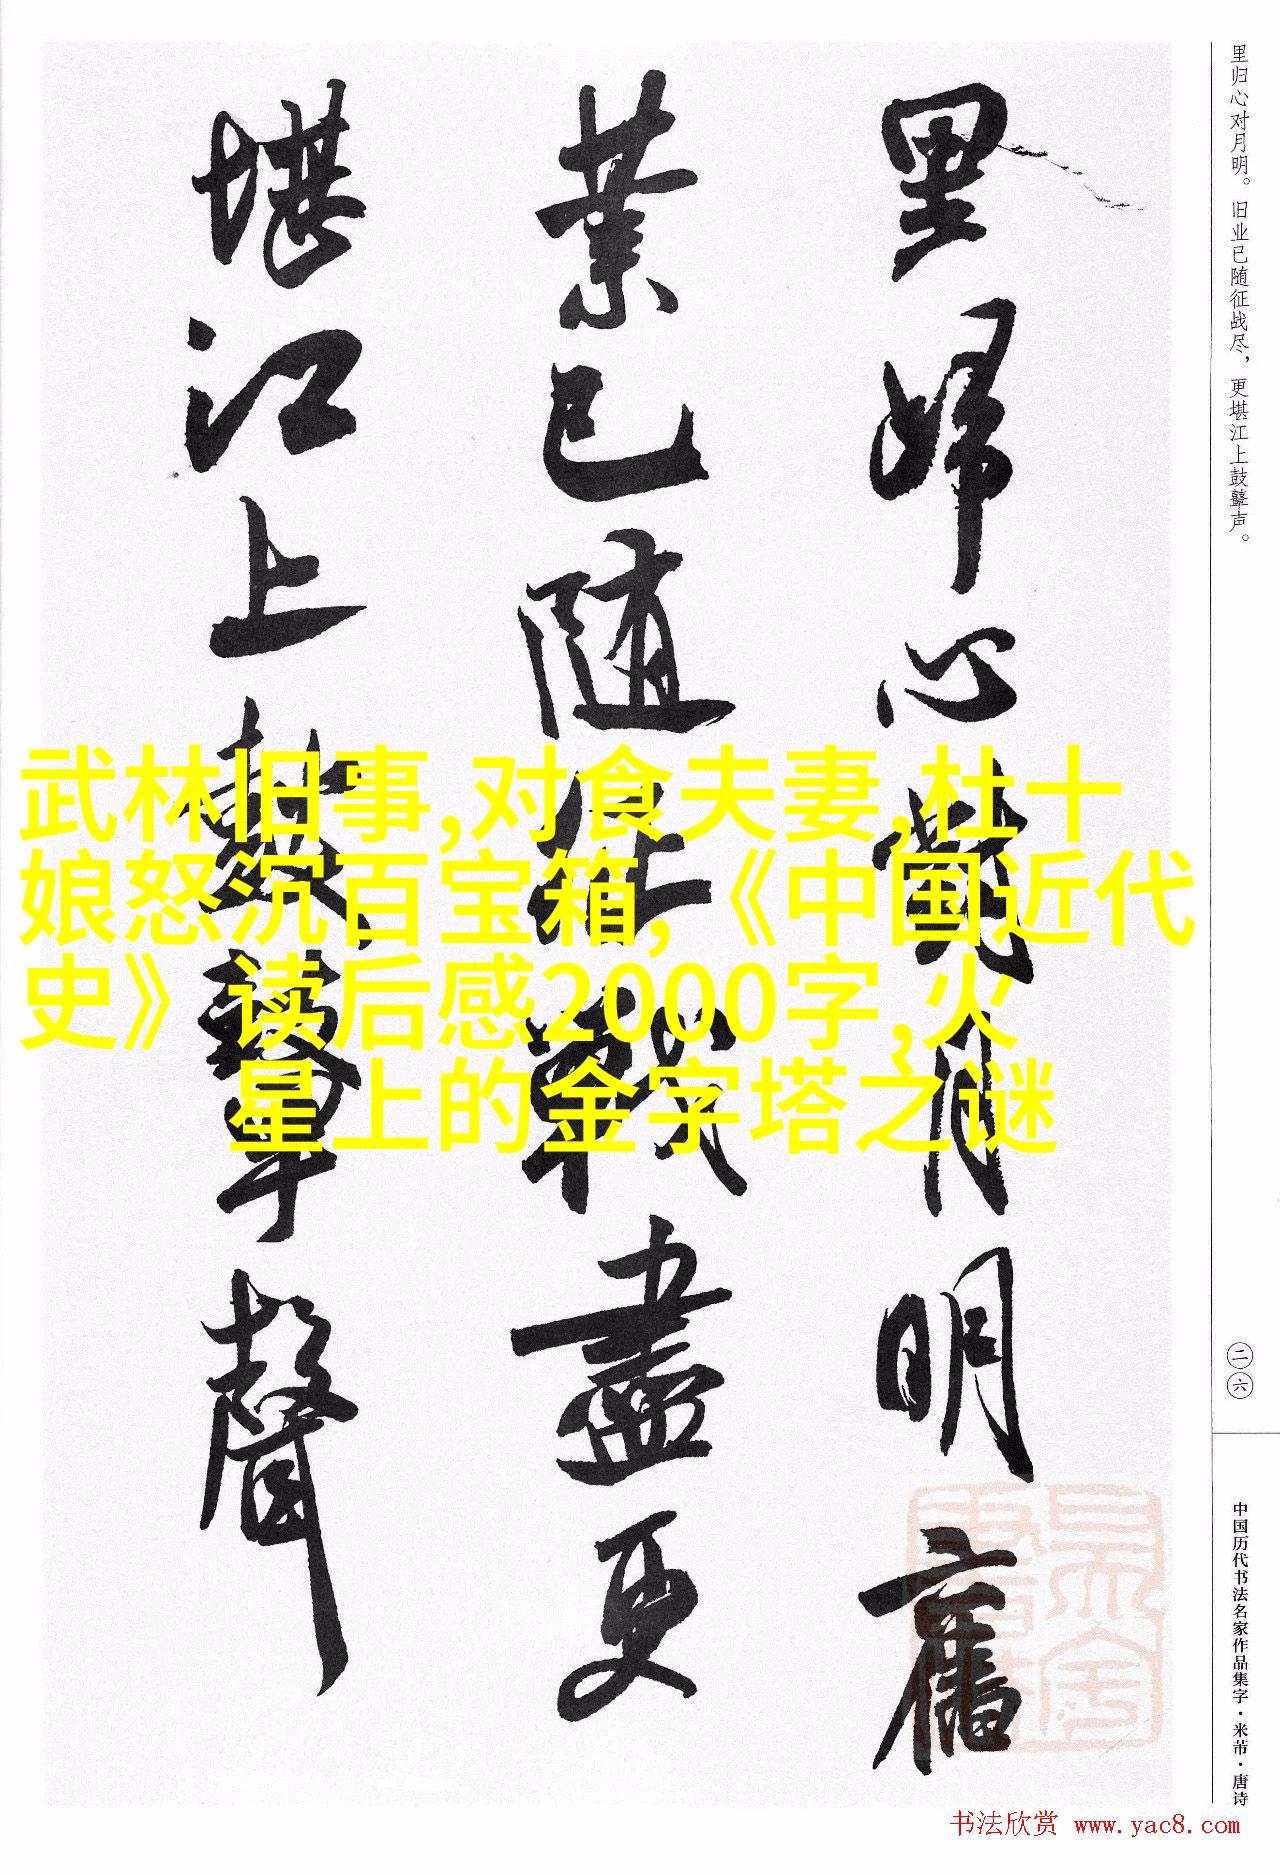 里归心对月明。旧业已随征战尽，更堪江上鼓鼙声。
里歸心對月明舊
業已隨征戰盡更
堪江上鼓鼙聲
武林旧事,对食夫妻,杜十
娘怒沉百宝箱,《中国近代
史》读后感2000字,火
星上的金字塔之谜
二六
中国历代书法名家作品集字·米芾·唐诗
书法欣赏 www.yac8.com